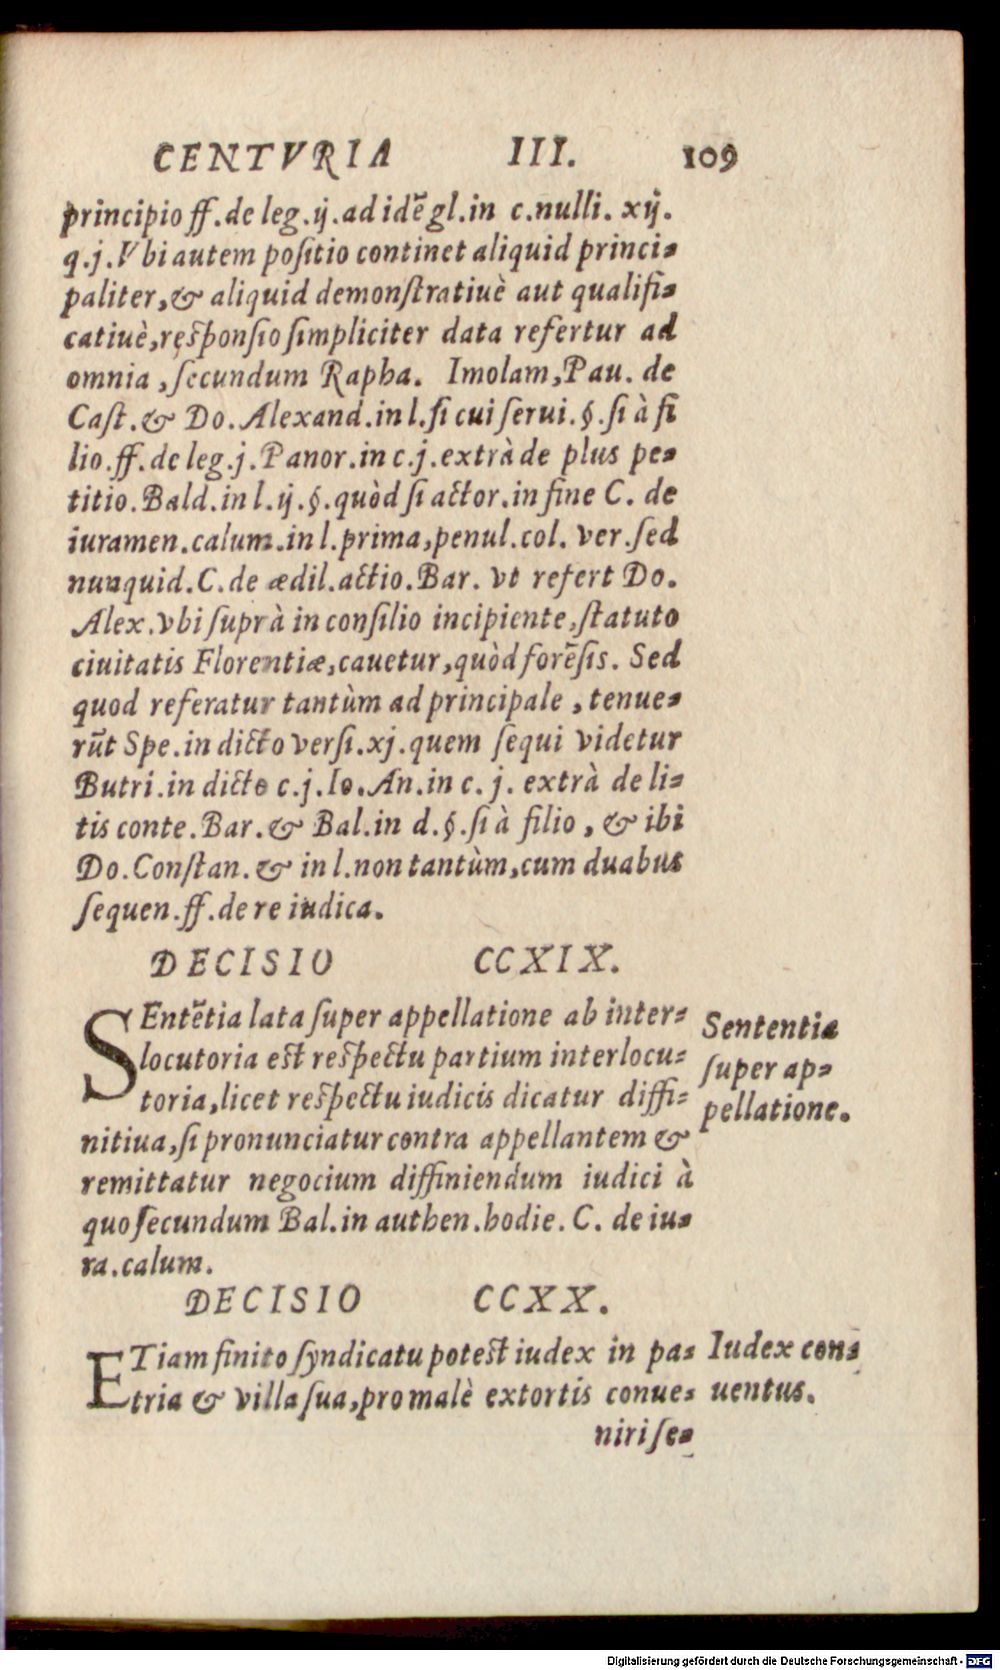 CENTVRIA III. 109
principio ff. de leg. ij. ad idẽ gl. in c. nulli. xij.
q. j. Vbi autem poſitio continet aliquid princi-
paliter, & aliquid demonſtratiuè aut qualifi-
catiuè, reſponſio ſimpliciter data refertur ad
omnia, ſecundum Rapha. Imolam, Pau. de
Caſt. & Do. Alexand. in l. ſi cui ſerui. §. ſi à fi
lio. ff. de leg. j. Panor. in c. j. extrà de plus pe-
titio. Bald. in l. ij. §. quòd ſi actor. in fine C. de
iuramen. calum. in l. prima, penul. col. ver. ſed
nunquid. C. de ædil. actio. Bar. vt refert Do.
Alex. vbi ſuprà in conſilio incipiente, ſtatuto
ciuitatis Florentiæ, cauetur, quòd forẽſis. Sed
quod referatur tantùm ad principale, tenue-
rũt Spe. in dicto verſi. xj. quem ſequi videtur
Butri. in dicto c. j. Io. An. in c. j. extrà de li-
tis conte. Bar. & Bal. in d. §. ſi à filio, & ibi
Do. Conſtan. & in l. non tantùm, cum duabus
ſequen. ff. de re iudica.
DECISIO CCXIX.
SEntẽtia lata ſuper appellatione ab inter-
locutoria eſt reſpectu partium interlocu-
toria, licet reſpectu iudicis dicatur diffi-
nitiua, ſi pronunciatur contra appellantem &
remittatur negocium diffiniendum iudici à
quo ſecundum Bal. in authen. hodie. C. de iu-
ra. calum.
Sententia
ſuper ap-
pellatione.
DECISIO CCXX.
ETiam finito ſyndicatu poteſt iudex in pa-
tria & villa ſua, pro malè extortis conue-
Iudex con-
uentus.
niri ſe-
Digitalisierung gefördert durch die Deutsche Forschungsgemeinschaft - DFG